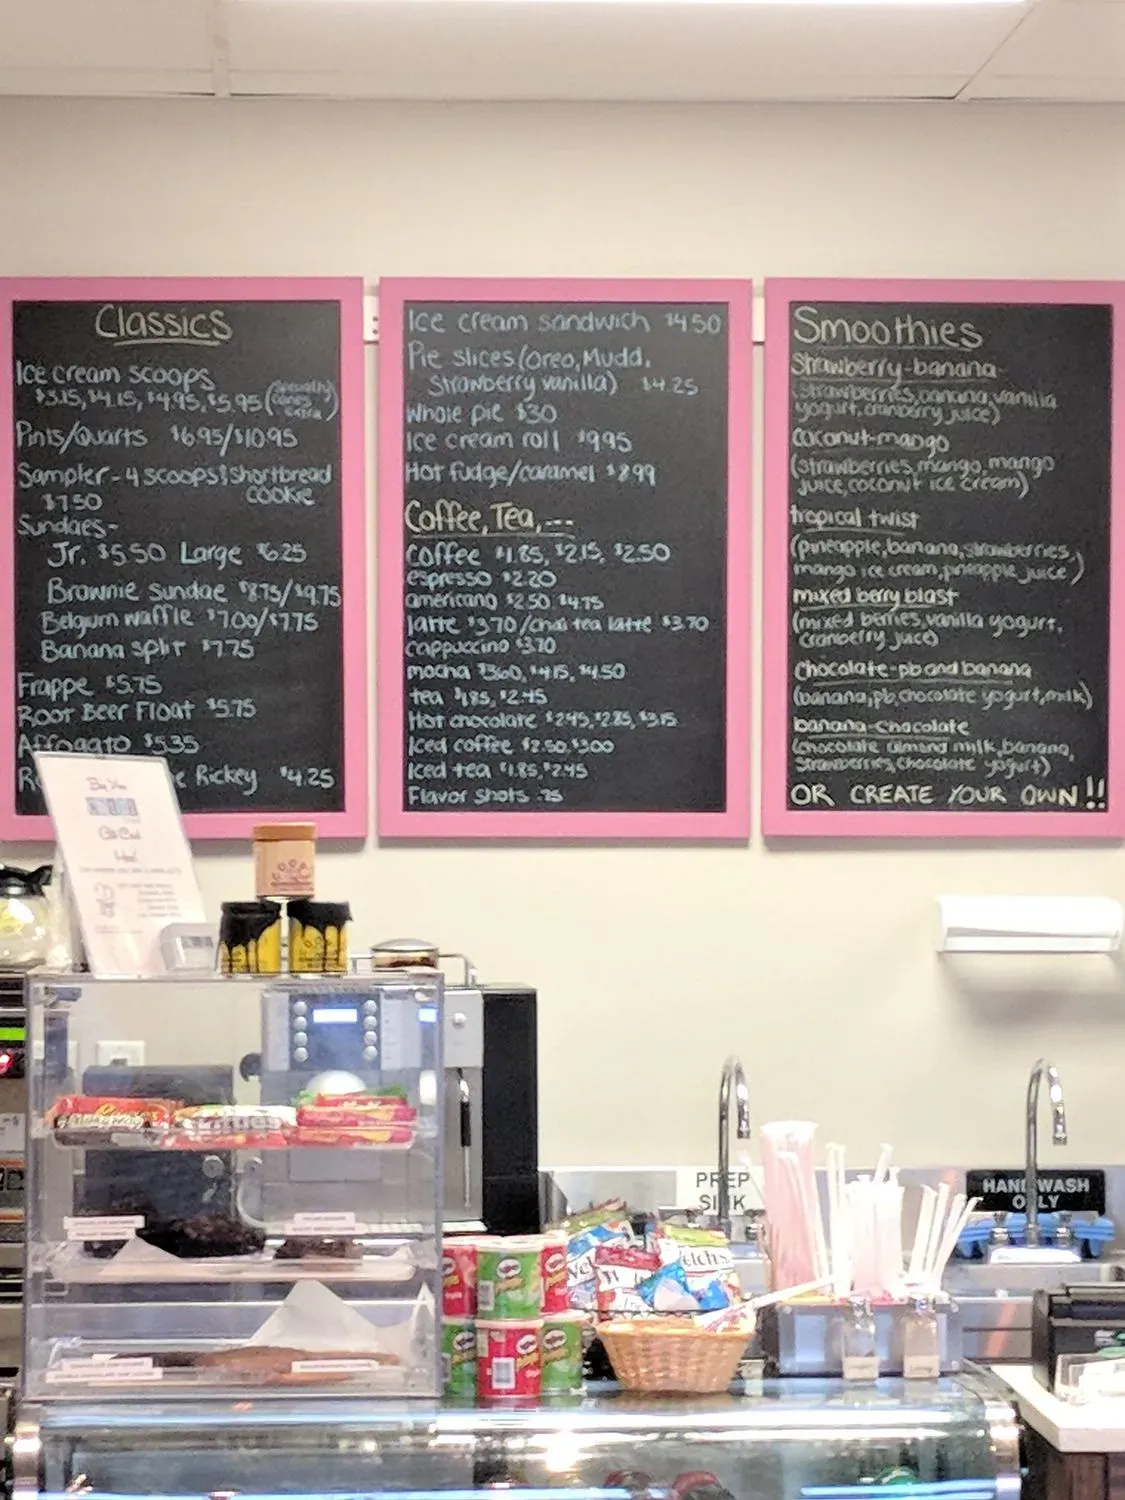 Classics
Ice cream scoops
$3.15, $4.15, $4.95, $5.95 (Specialty cones extra)
Pints/Quarts $6.95/$10.95
Sampler - 4 scoops & shortbread
$7.50 cookie
Sundaes-
Jr. $5.50 Large $6.25
Brownie sundae $8.75/$9.75
Belgum waffle $7.00/$7.75
Banana split $7.75
Frappe $5.75
Root Beer Float $5.75
Affogato $5.35
Rickey $4.25
Ice cream sandwich $4.50
Pie slices (Oreo, Mudd,
Strawberry vanilla) $4.25
Whole pie $30
Ice cream roll $9.95
Hot fudge/caramel $8.99
Coffee, Tea, ...
Coffee $1.85, $2.15, $2.50
espresso $2.20
americano $2.50 $4.75
latte $3.70/chai tea latte $3.70
cappuccino $3.70
mocha $3.60, $4.15, $4.50
tea $1.85, $2.45
Hot chocolate $2.45, $2.85, $3.15
Iced coffee $2.50, $3.00
Iced tea $1.85, $2.45
Flavor shots .75
Smoothies
Strawberry-banana
(strawberries, banana, vanilla
yogurt, cranberry juice)
coconut-mango
(strawberries, mango, mango
juice, coconut ice cream)
tropical twist
(pineapple, banana, strawberries,
mango ice cream, pineapple juice)
mixed berry blast
(mixed berries, vanilla yogurt,
cranberry juice)
Chocolate-pb and banana
(banana, pb, chocolate yogurt, milk)
banana-chocolate
(chocolate almond milk, banana,
strawberries, chocolate yogurt)
OR CREATE YOUR OWN!!
PREP
SINK
HAND WASH
ONLY
Welch's